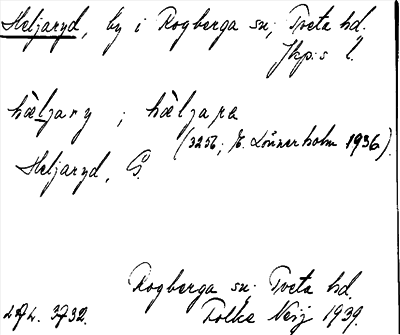 Heljaryd, by i Rogberga sn; Tveta hd.
Jkp:s l.
hæljary ; hæljara
(3256; E. Lönnerholm 1936)
Heljaryd, G.
Rogberga sn. Tveta hd.
Folke Neij 1939.